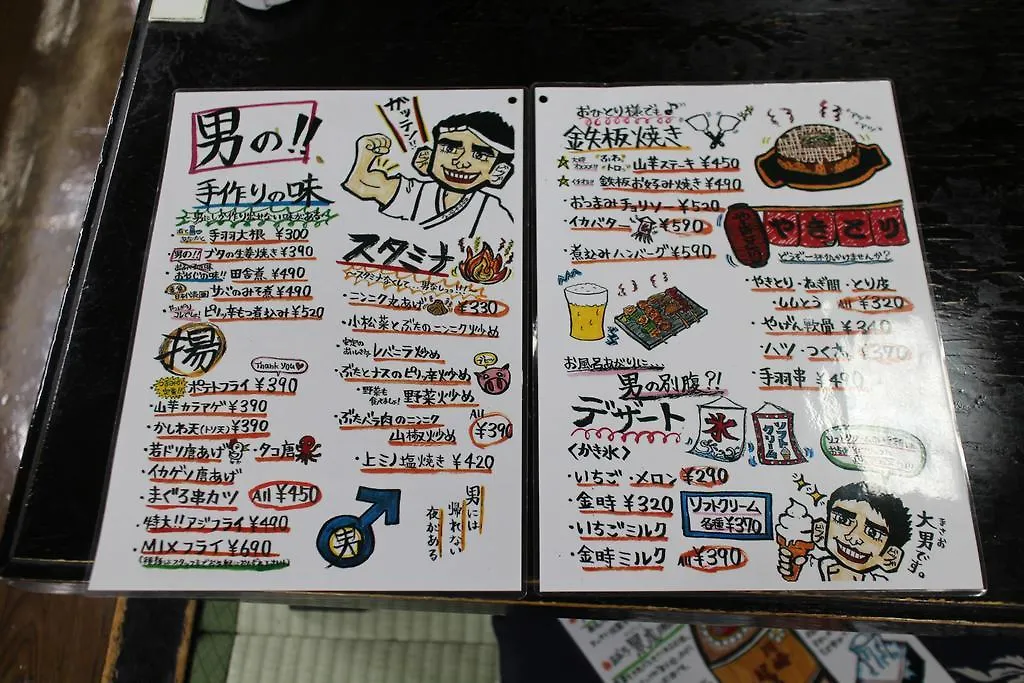 男の!!
ガッテン!!
手作りの味
男にしか作り出せない味がある
手羽大根 ¥300
男の!! ブタの生姜焼き ¥390
おやじの味!! 田舎煮 ¥490
サバのみそ煮 ¥490
ピリッ辛もつ煮込み ¥520
揚
Thank you♥
ポテトフライ ¥390
・山芋カラアゲ ¥390
・かしわ天(トリ天) ¥390
・若ドリ唐あげ ・タコ唐
・イカゲソ唐あげ
・まぐろ串カツ All ¥450
・特大!! アジフライ ¥490
・MIXフライ ¥690
スタミナ
・ニンニク丸あげ ¥330
・小松菜とぶたのニンニクリ炒め
レバニラ炒め
・ぶたとナスのピリ辛炒め
野菜炒め
・ぶたバラ肉のニンニク
山椒炒め
All ¥390
・上ミノ塩焼き ¥420
男
男には
帰れない
夜がある
おひとり様でも♪
鉄板焼き
☆ ふわ トロ 山芋ステーキ ¥450
☆ 鉄板お好み焼き ¥490
・おつまみチョリソー ¥520
・イカバター ¥590
・煮込みハンバーグ ¥590
やきとり
やきとり
どうぞ一杯ひっかけませんか?
・やきとり・ねぎ間・とり皮
・ししとう All ¥320
・やげん軟骨 ¥340
・ハツ・つくね ¥370
・手羽串 ¥490
お風呂あがりに…
男の別腹?!
デザート
氷
ソフトクリーム
<かき氷>
・いちご・メロン ¥290
・金時 ¥320
・いちごミルク
・金時ミルク All ¥390
ソフトクリーム
各種 ¥370
大男です。
まさお